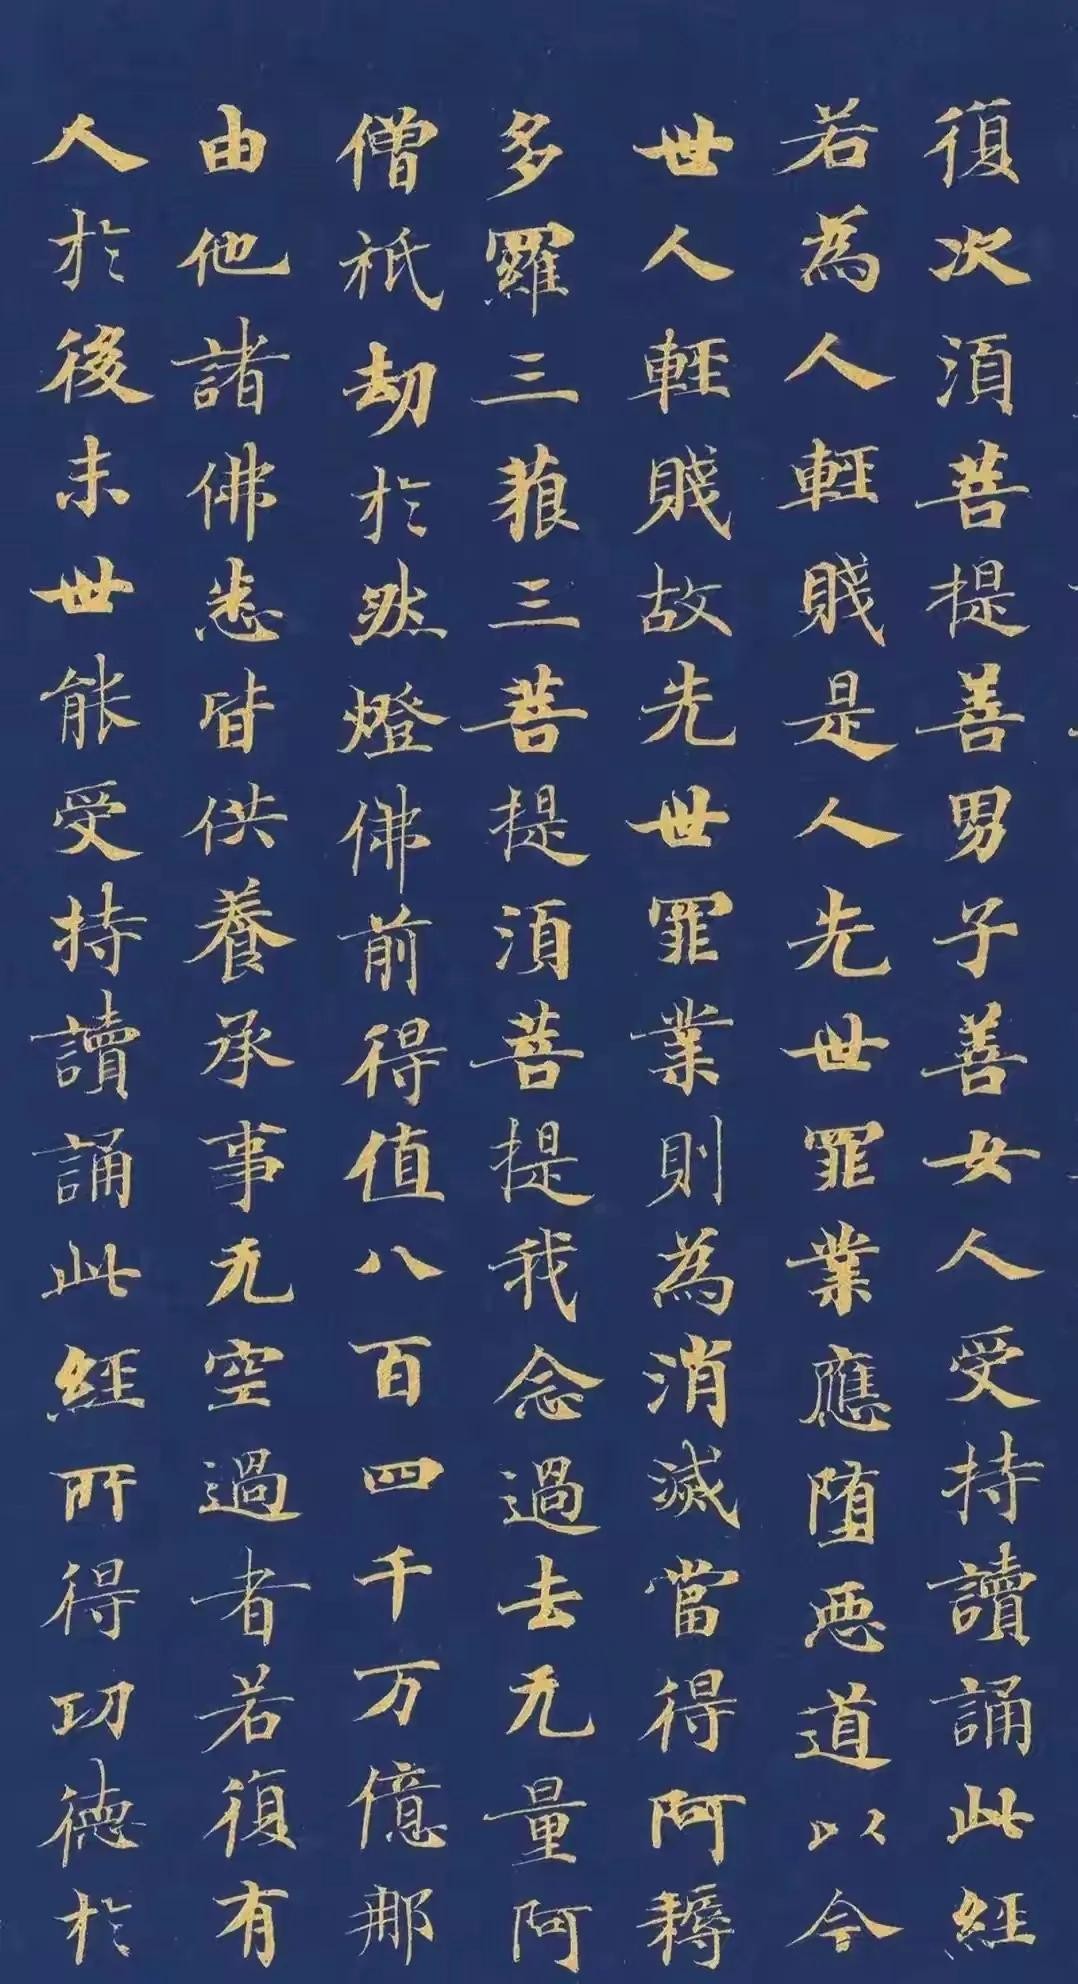 復次湏菩提善男子善女人受持讀誦此經
若為人輕賤是人先世罪業應堕悪道以今
世人輕賤故先世罪業則為消滅當得阿耨
多羅三藐三菩提湏菩提我念過去无量阿
僧祇劫於然燈佛前得值八百四千万億那
由他諸佛悉皆供養承事无空過者若復有
人於後末世能受持讀誦此經所得功德於